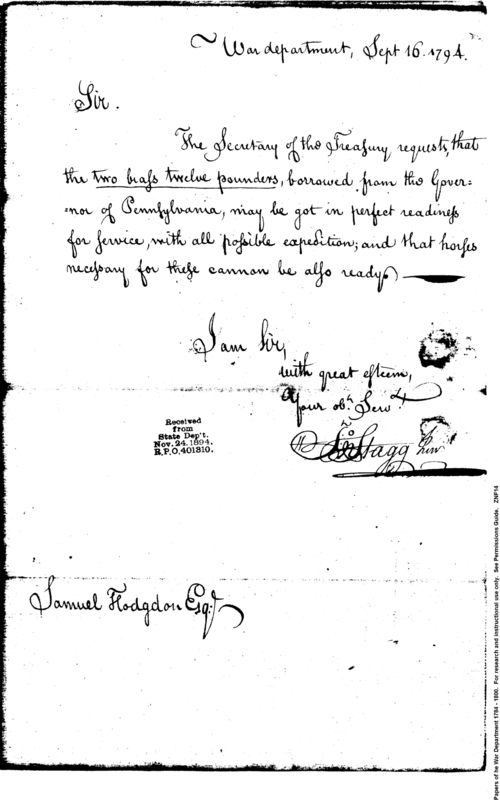 War department, Sept 16. 1794.
Sir.
The Secretary of the Treasury requests, that
the two brass twelve pounders, borrowed from the Gover=
=nor of Pennsylvania, may be got in perfect readiness
for service, with all possible expedition; and that horses
necessary for these cannon be also ready.
I am Sir,
with great esteem,
Your obt. Servt.
Jno Stagg Junr
Received
from
State Dep't.
Nov. 24, 1894.
R.P.O. 401310.
Samuel Hodgdon Esqr.
Papers of he War Department 1784 - 1800. For research and instructional use only. See Permissions Guide. ZNP14